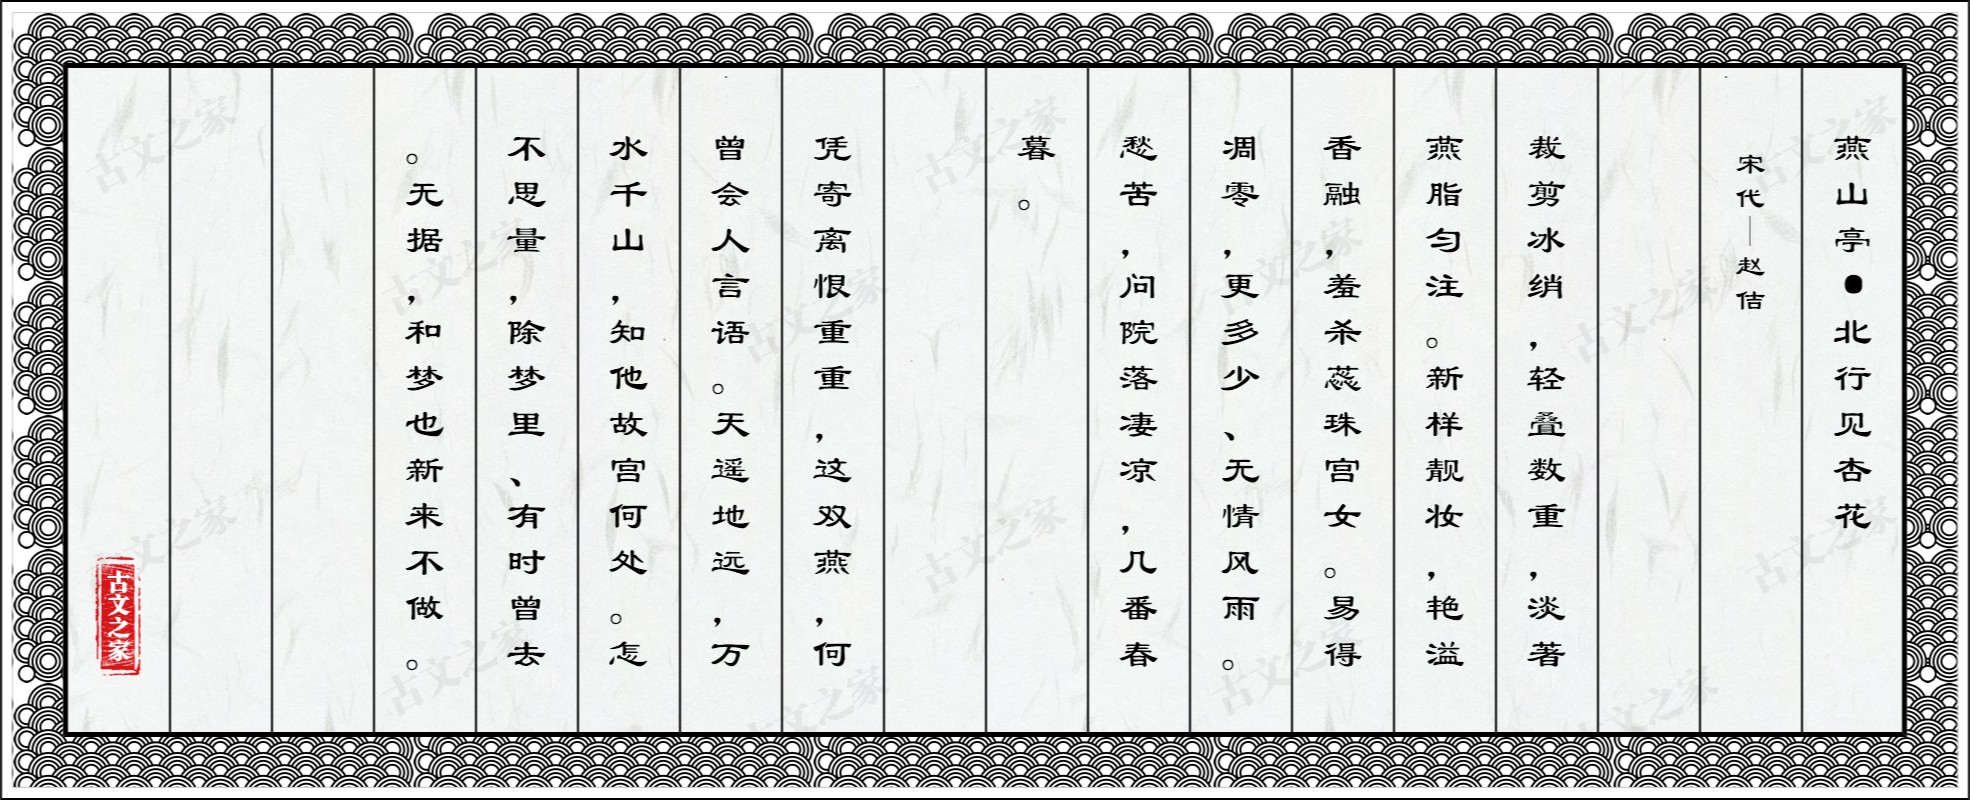 燕山亭●北行见杏花
宋代｜赵佶
裁剪冰绡，轻叠数重，淡著
燕脂匀注。新样靓妆，艳溢
香融，羞杀蕊珠宫女。易得
凋零，更多少、无情风雨。
愁苦，问院落凄凉，几番春
暮。
凭寄离恨重重，这双燕，何
曾会人言语。天遥地远，万
水千山，知他故宫何处。怎
不思量，除梦里、有时曾去
。无据，和梦也新来不做。
古文之家